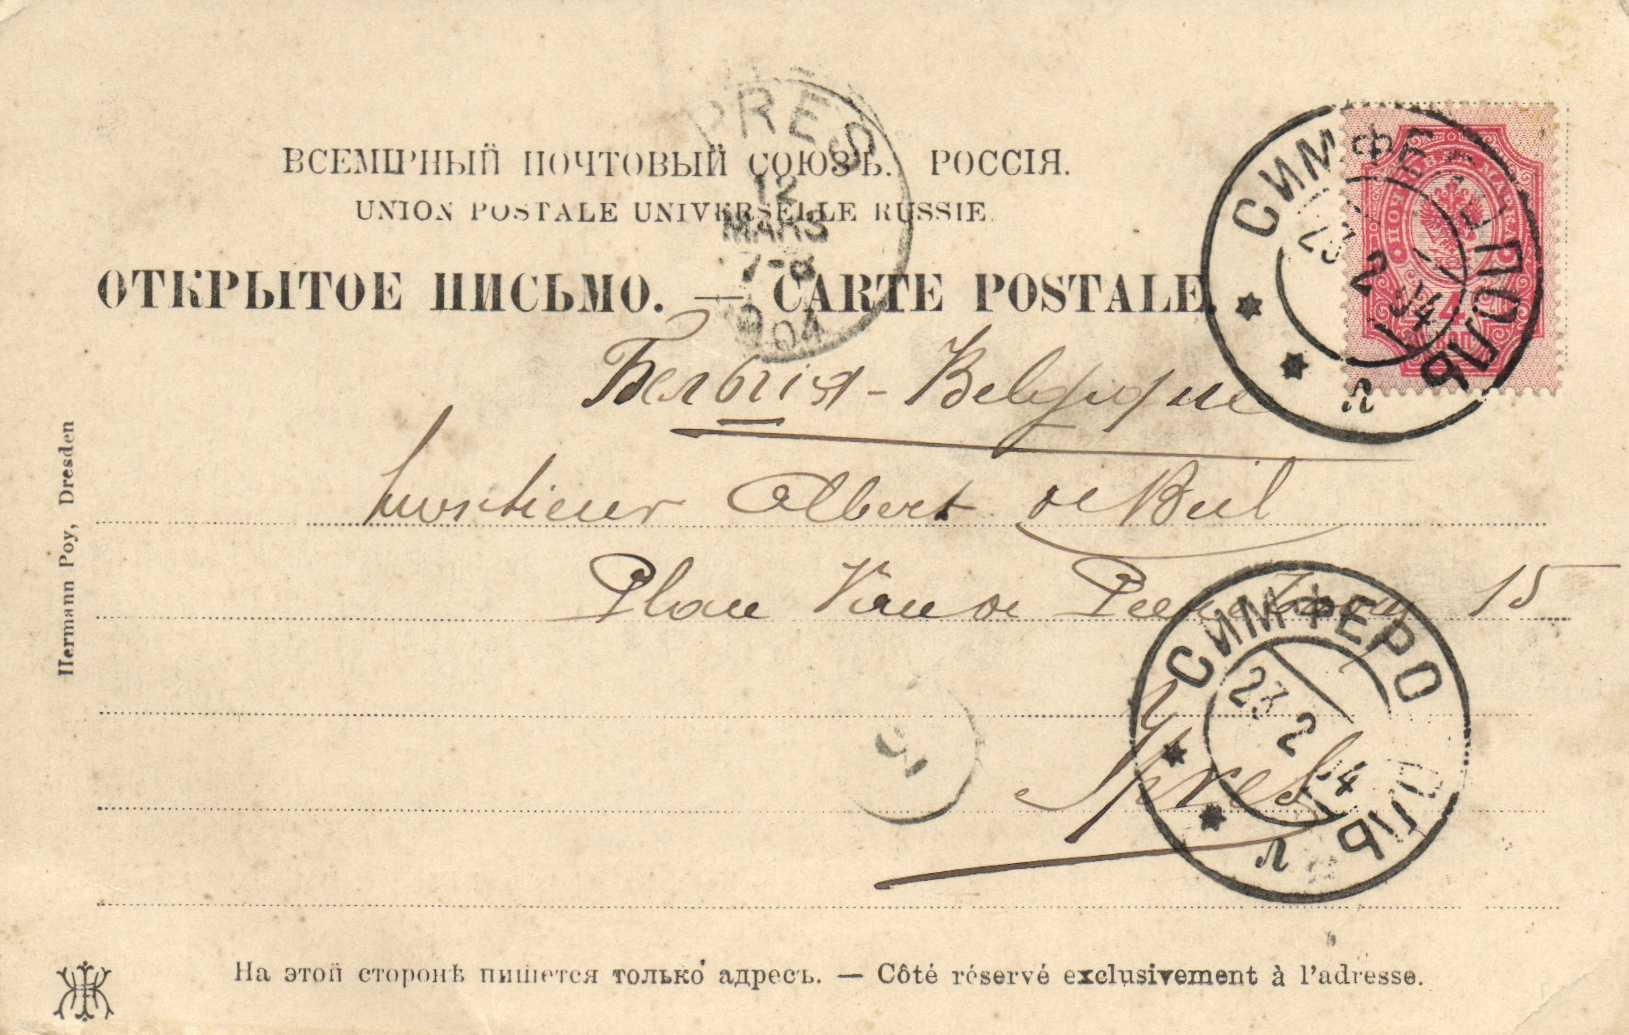 ВСЕМІРНЫЙ ПОЧТОВЫЙ СОЮЗЪ. РОССІЯ.
UNION POSTALE UNIVERSELLE RUSSIE.
ОТКРЫТОЕ ПИСЬМО. — CARTE POSTALE.
PRES
12
MARS
7-8
1904
СИМФЕ ПОЛЬ
23
2
04
л
4
Бельгія - Belgique
Monsieur Albert de
15
Ypres
СИМФЕРО ПЛЬ
23
2
04
л
Hermann Poy, Dresden
На этой сторонѣ пишется только адресъ. — Côté réservé exclusivement à l'adresse.